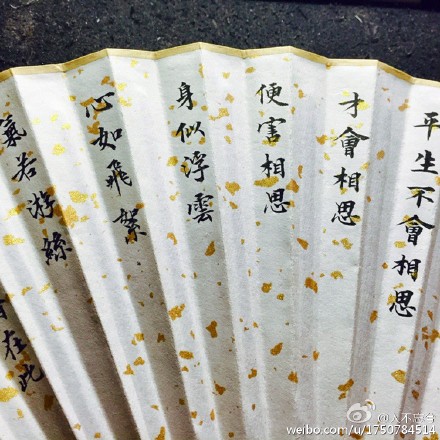 平生不會相思
才會相思
便害相思
身似浮雲
心如飛絮
氣若游絲
在此
weibo.com/u/1750784514